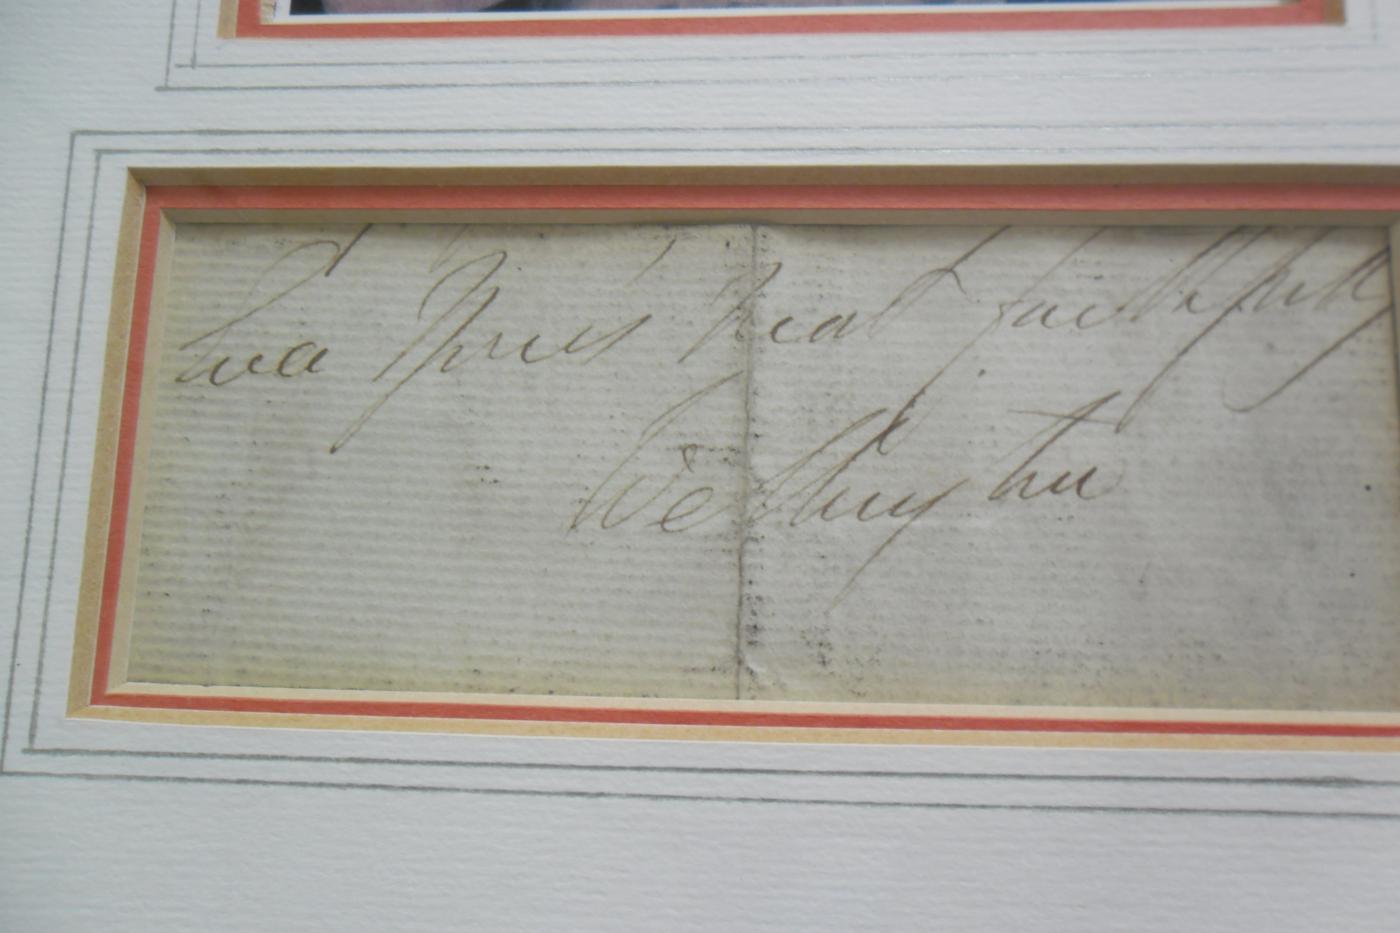 Ever Yours Most faithfully
Wellington